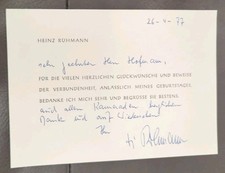 HEINZ RÜHMANN
FÜR DIE VIELEN HERZLICHEN GLÜCKWÜNSCHE UND BEWEISE
DER VERBUNDENHEIT, ANLÄSSLICH MEINES GEBURTSTAGES,
BEDANKE ICH MICH SEHR UND BEGRÜSSE SIE BESTENS.
und allen Kameraden herzlichen
Dank und auf Wiedersehen
Ihr